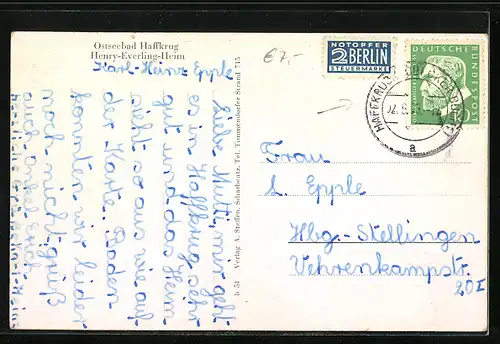 Ostseebad Haffkrug
Henry-Everling-Heim
Karl-Heinz Epple
€7,-
NOTOPFER
2 BERLIN
STEUERMARKE
DEUTSCHE
BUNDESPOST
HAFFKRUG
a
Liebe Mutti, mir geht
es in Haffkrug sehr
gut und das Heim
sieht so aus wie auf
der Karte. Baden
konnten wir leider
noch nicht. grüß
auch Onkel Erich
D-51 Verlag A. Steden, Scharbeutz, Tel. Timmendorfer Strand 715
Frau
L. Epple
Hbg.-Stellingen
Vehrenkampstr.
20I